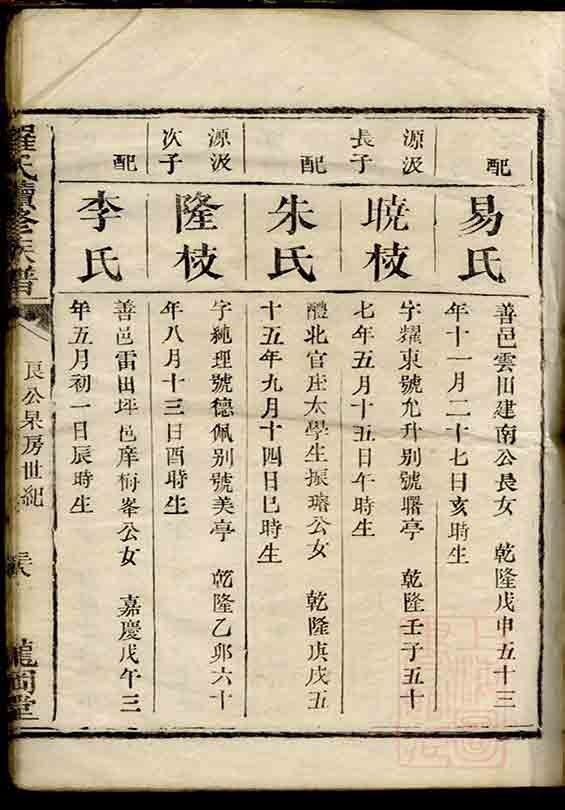 配
易氏
善邑雲田建南公長女　乾隆戊申五十三
年十一月二十七日亥時生
源汲
長子
曉枝
字耀東號允升别號曙亭　乾隆壬子五十
七年五月十五日午時生
配
朱氏
醴北官庄太學生振璿公女　乾隆庚戌五
十五年九月十四日巳時生
源汲
次子
隆枝
字純理號德佩别號美亭　乾隆乙卯六十
年八月十三日酉時生
配
李氏
善邑雷田坪邑庠梅峯公女　嘉慶戊午三
年五月初一日辰時生
羅氏續修族譜
良公杲房世紀